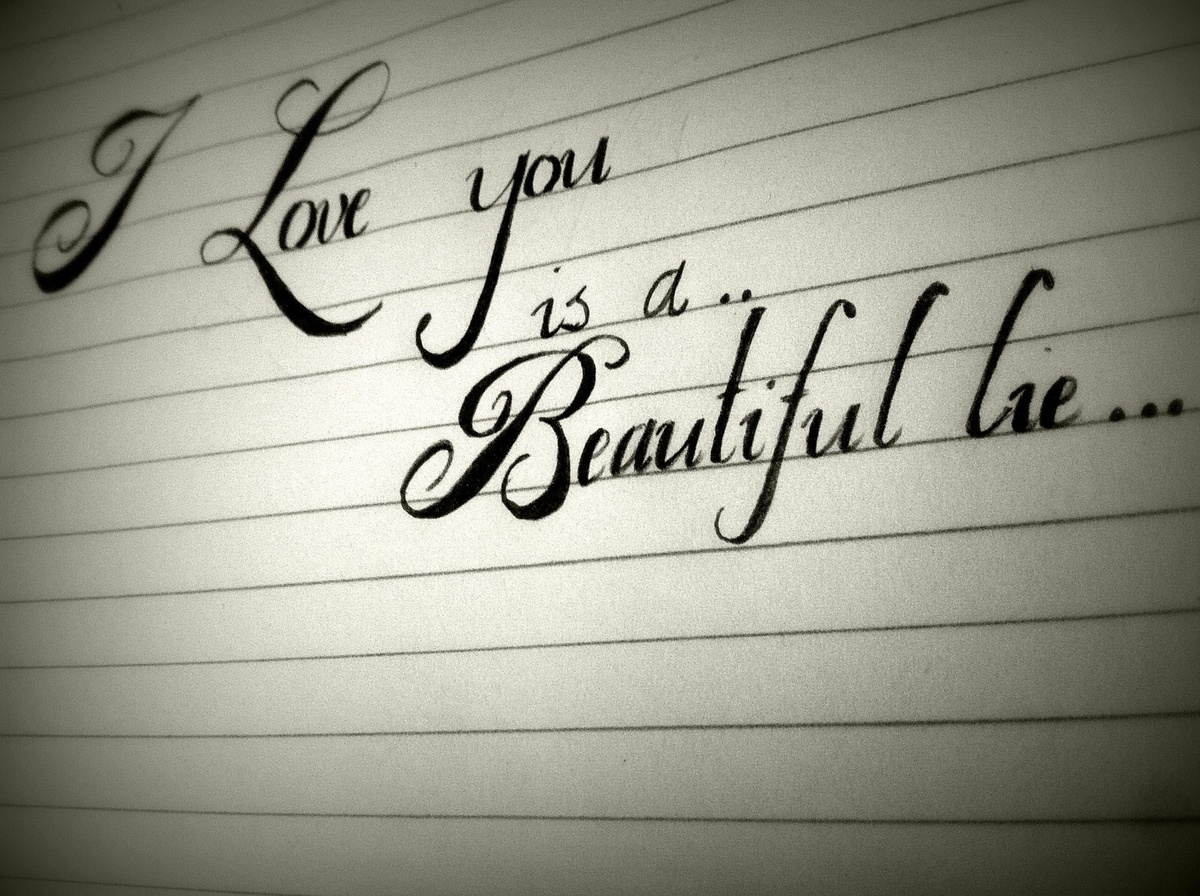 I Love you
is a..
Beautiful lie...